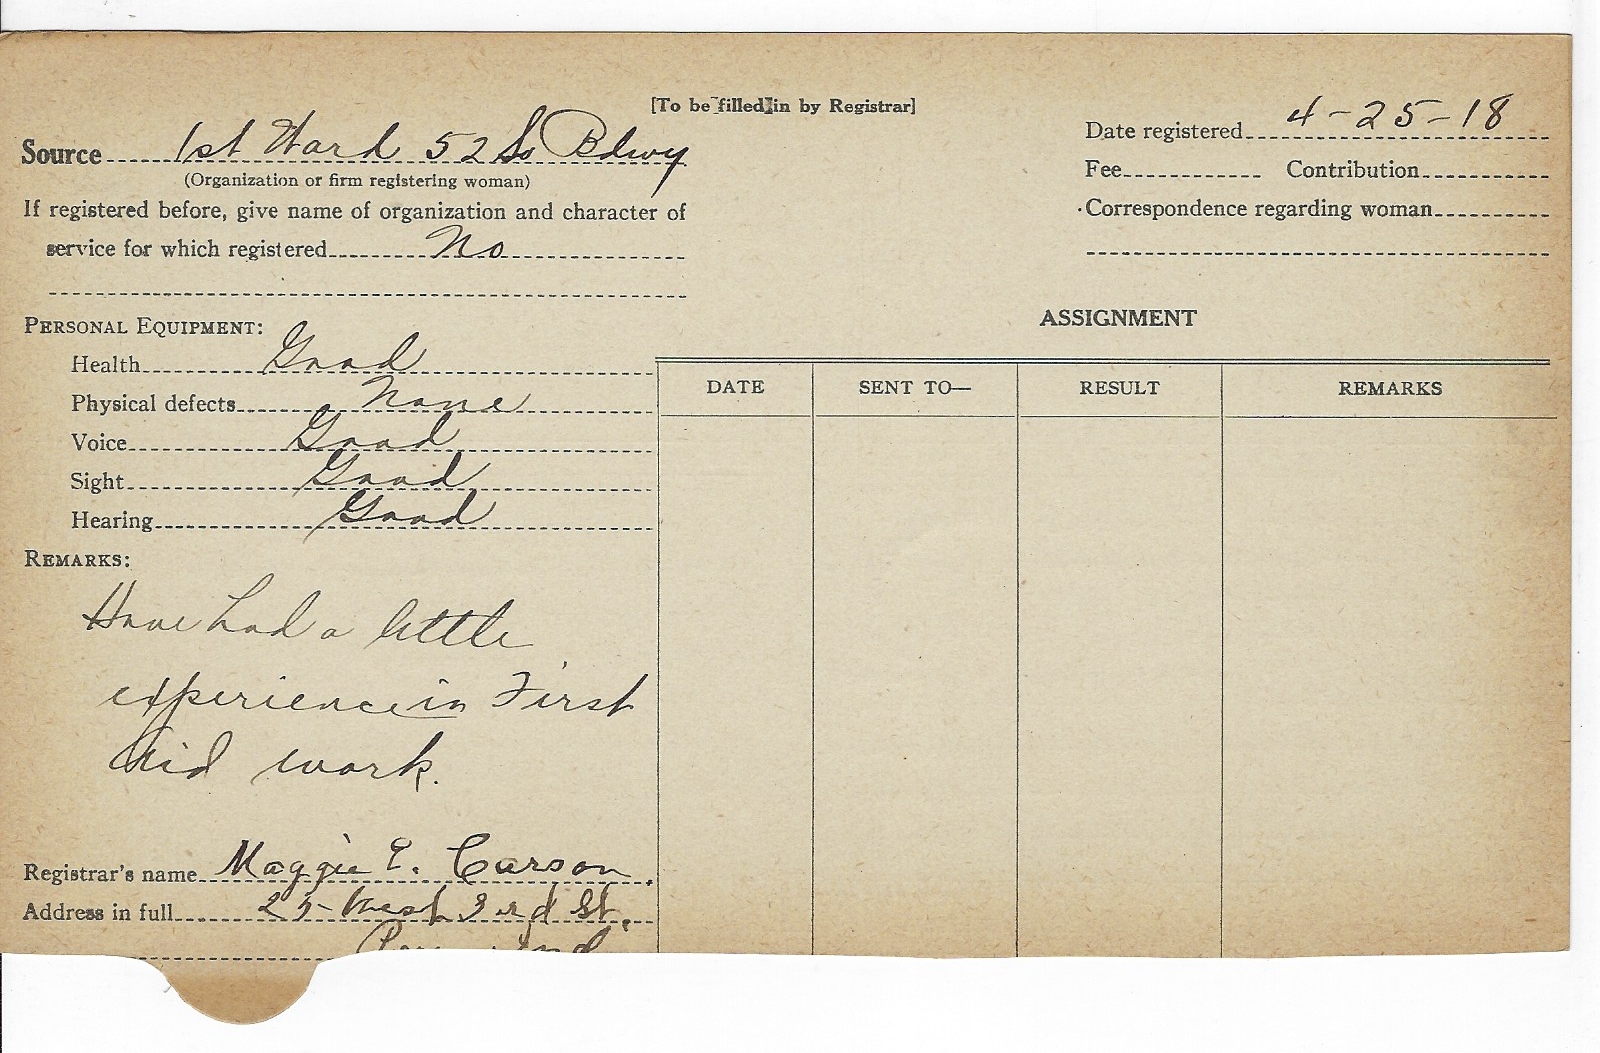 [To be filled in by Registrar]
Source 1st Ward 52 So Bdwy
(Organization or firm registering woman)
If registered before, give name of organization and character of
service for which registered No
PERSONAL EQUIPMENT:
Health Good
Physical defects None
Voice Good
Sight Good
Hearing Good
REMARKS:
Have had a little
experience in First
Aid work.
Registrar's name Maggie E. Carson.
Address in full 25 West 3rd St.
Date registered 4-25-18
Fee Contribution
Correspondence regarding woman
ASSIGNMENT
DATE SENT TO— RESULT REMARKS